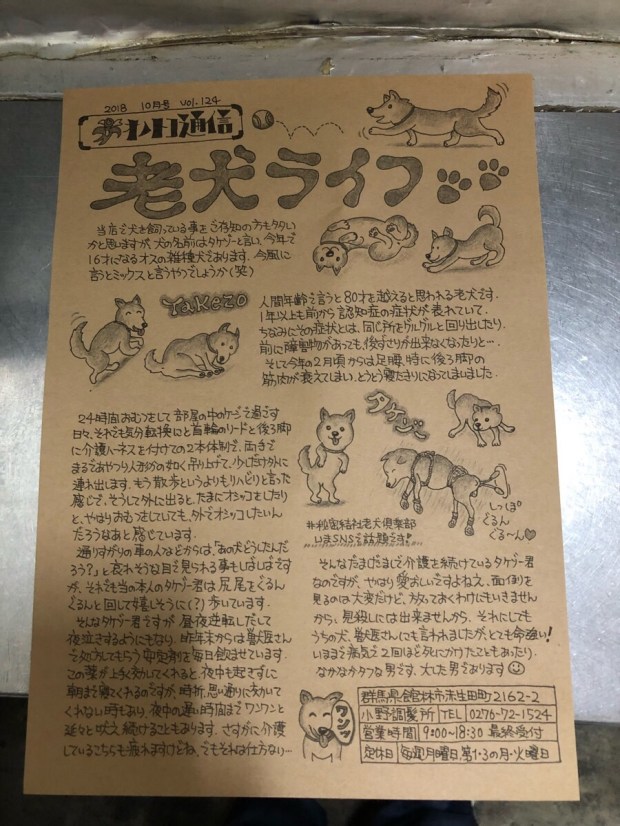 2018 10月号 vol.124
オノトコ通信
老犬ライフ
当店で犬を飼っている事をご存知の方も多い
かと思いますが、犬の名前はタケゾーと言い、今年で
16才になるオスの雑種犬であります。今風に
言うとミックスと言うやつでしょうか(笑)
Takezo
人間年齢で言うと80才を越えると思われる老犬です。
1年以上も前から認知症の症状が表れていて、
ちなみにその症状とは、同じ所をグルグルと回り出したり、
前に障害物があっても、後ずさりが出来なくなったりと…
そして今年の2月頃からは足腰、特に後ろ脚の
筋肉が衰えてしまい、とうとう寝たきりになってしまいました。
24時間おむつをして部屋の中のケージで過ごす
日々、それでも気分転換にと首輪のリードと後ろ脚
に介護ハーネスを付けての2本体制で、両手で
まるであやつり人形かの如く吊り上げて、少しだけ外に
連れ出します。もう散歩というよりもリハビリと言った
感じで、そうして外に出ると、たまにオシッコをしたり
と、やはりおむつをしていても、外でオシッコしたいん
だろうなあと感じています。
通りすがりの車の人などからは、「あの犬どうしたんだ
ろう?」と哀れそうな目で見られる事もしばしばです
が、それでも当の本人のタケゾー君は尻尾をぐるん
ぐるんと回して嬉しそうに(?)歩いています。
そんなタケゾー君ですが、昼夜逆転しだして
夜泣きするようにもなり、昨年末からは獣医さん
で処方してもらう安定剤を毎日飲ませています。
この薬が上手く効いてくれると、夜中も起きずに
朝まで寝てくれるのですが、時折、思い通りに効いて
くれない時もあり、夜中の遅い時間までワンワンと
延々と吠え続けることもあります。さすがに介護
しているこちらも疲れますけどね、でもそれは仕方ない…
タケゾー
しっぽ
ぐるん
ぐる〜ん♡
#秘密結社老犬倶楽部
いまSNSで話題です!
そんなこんなで介護を続けているタケゾー君
なのですが、やはり愛おしいですよねえ、面倒を
見るのは大変だけど、放っておくわけにもいきません
から、見殺しには出来ませんから、それにしても
うちの犬、獣医さんにも言われましたが、とても命強い!
いままで病気で2回ほど死にかけたこともあったり、
なかなかタフな男です、大した男であります☺
ワンッ
群馬県館林市赤生田町2162-2
小野調髪所 TEL 0276-72-1524
営業時間 9:00〜18:30 最終受付
定休日 毎週月曜日、第1・3の月・火曜日